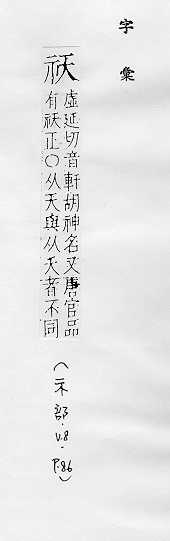 字彙
祆
虛延切音軒胡神名又唐官品
有祆正〇从天與从夭者不同
(示部.V.8.P.86)